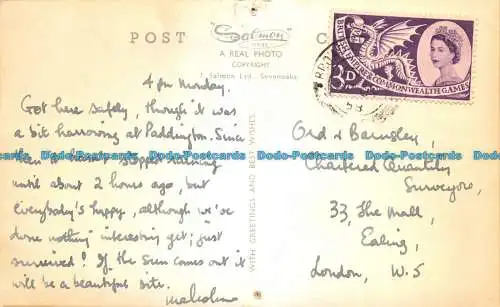 POST C
Salmon
SERIES
A REAL PHOTO
COPYRIGHT
Salmon Ltd., Sevenoaks
BRITISH EMPIRE & COMMONWEALTH GAMES
3D
58
4 pm Monday.
Got here safely, though it was
a bit harrowing at Paddington. Since
then it hasn't stopped raining
until about 2 hours ago, but
everybody's happy, although we've
done nothing interesting yet; just
survived! If the sun comes out it
will be a beautiful site.
Malcolm
WITH GREETINGS AND BEST WISHES
Ord & Barnsley,
Chartered Quantity
Surveyors,
33, The Mall,
Ealing,
London, W.5
Dodo-Postcards Dodo-Postcards Dodo-Postcards Dodo-Postcards Dodo-Postcards